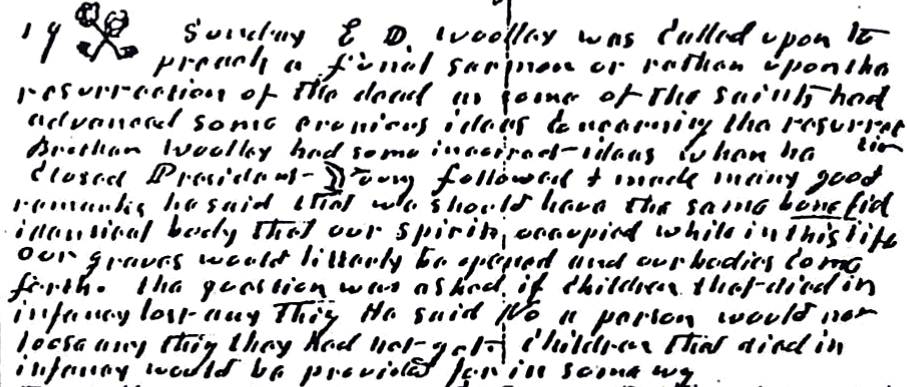 19 Sunday E D. Woolley was called upon to
preach a funel sarmon or rathar upon tha
resurraction of tha dead as some of tha saints had
advanced some eronious ideas concarning tha resurrec
Brothar Woolley had some incorract ideas whan ha tion
closed Presidant Young followed & made many good
remarks he said that we should have tha same bonefid
identical body that our spirits occupied while in this life
our graves would litterly be opened and our bodies come
forth. tha question was asked if children that died in
infancy lost any thig He said No a person would not
loose any thig thay had not got. Children that died in
infancy would be provided for in some wy